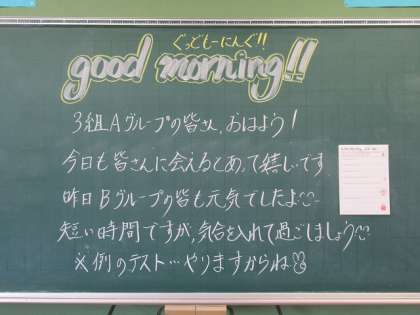 ぐっどもーにんぐ!!
good morning!!
3組Aグループの皆さん、おはよう!
今日も皆さんに会えるとあって嬉しいです
昨日Bグループの皆も元気でしたよ♡
短い時間ですが、気合を入れて過ごしましょう♡
※例のテスト…やりますからね